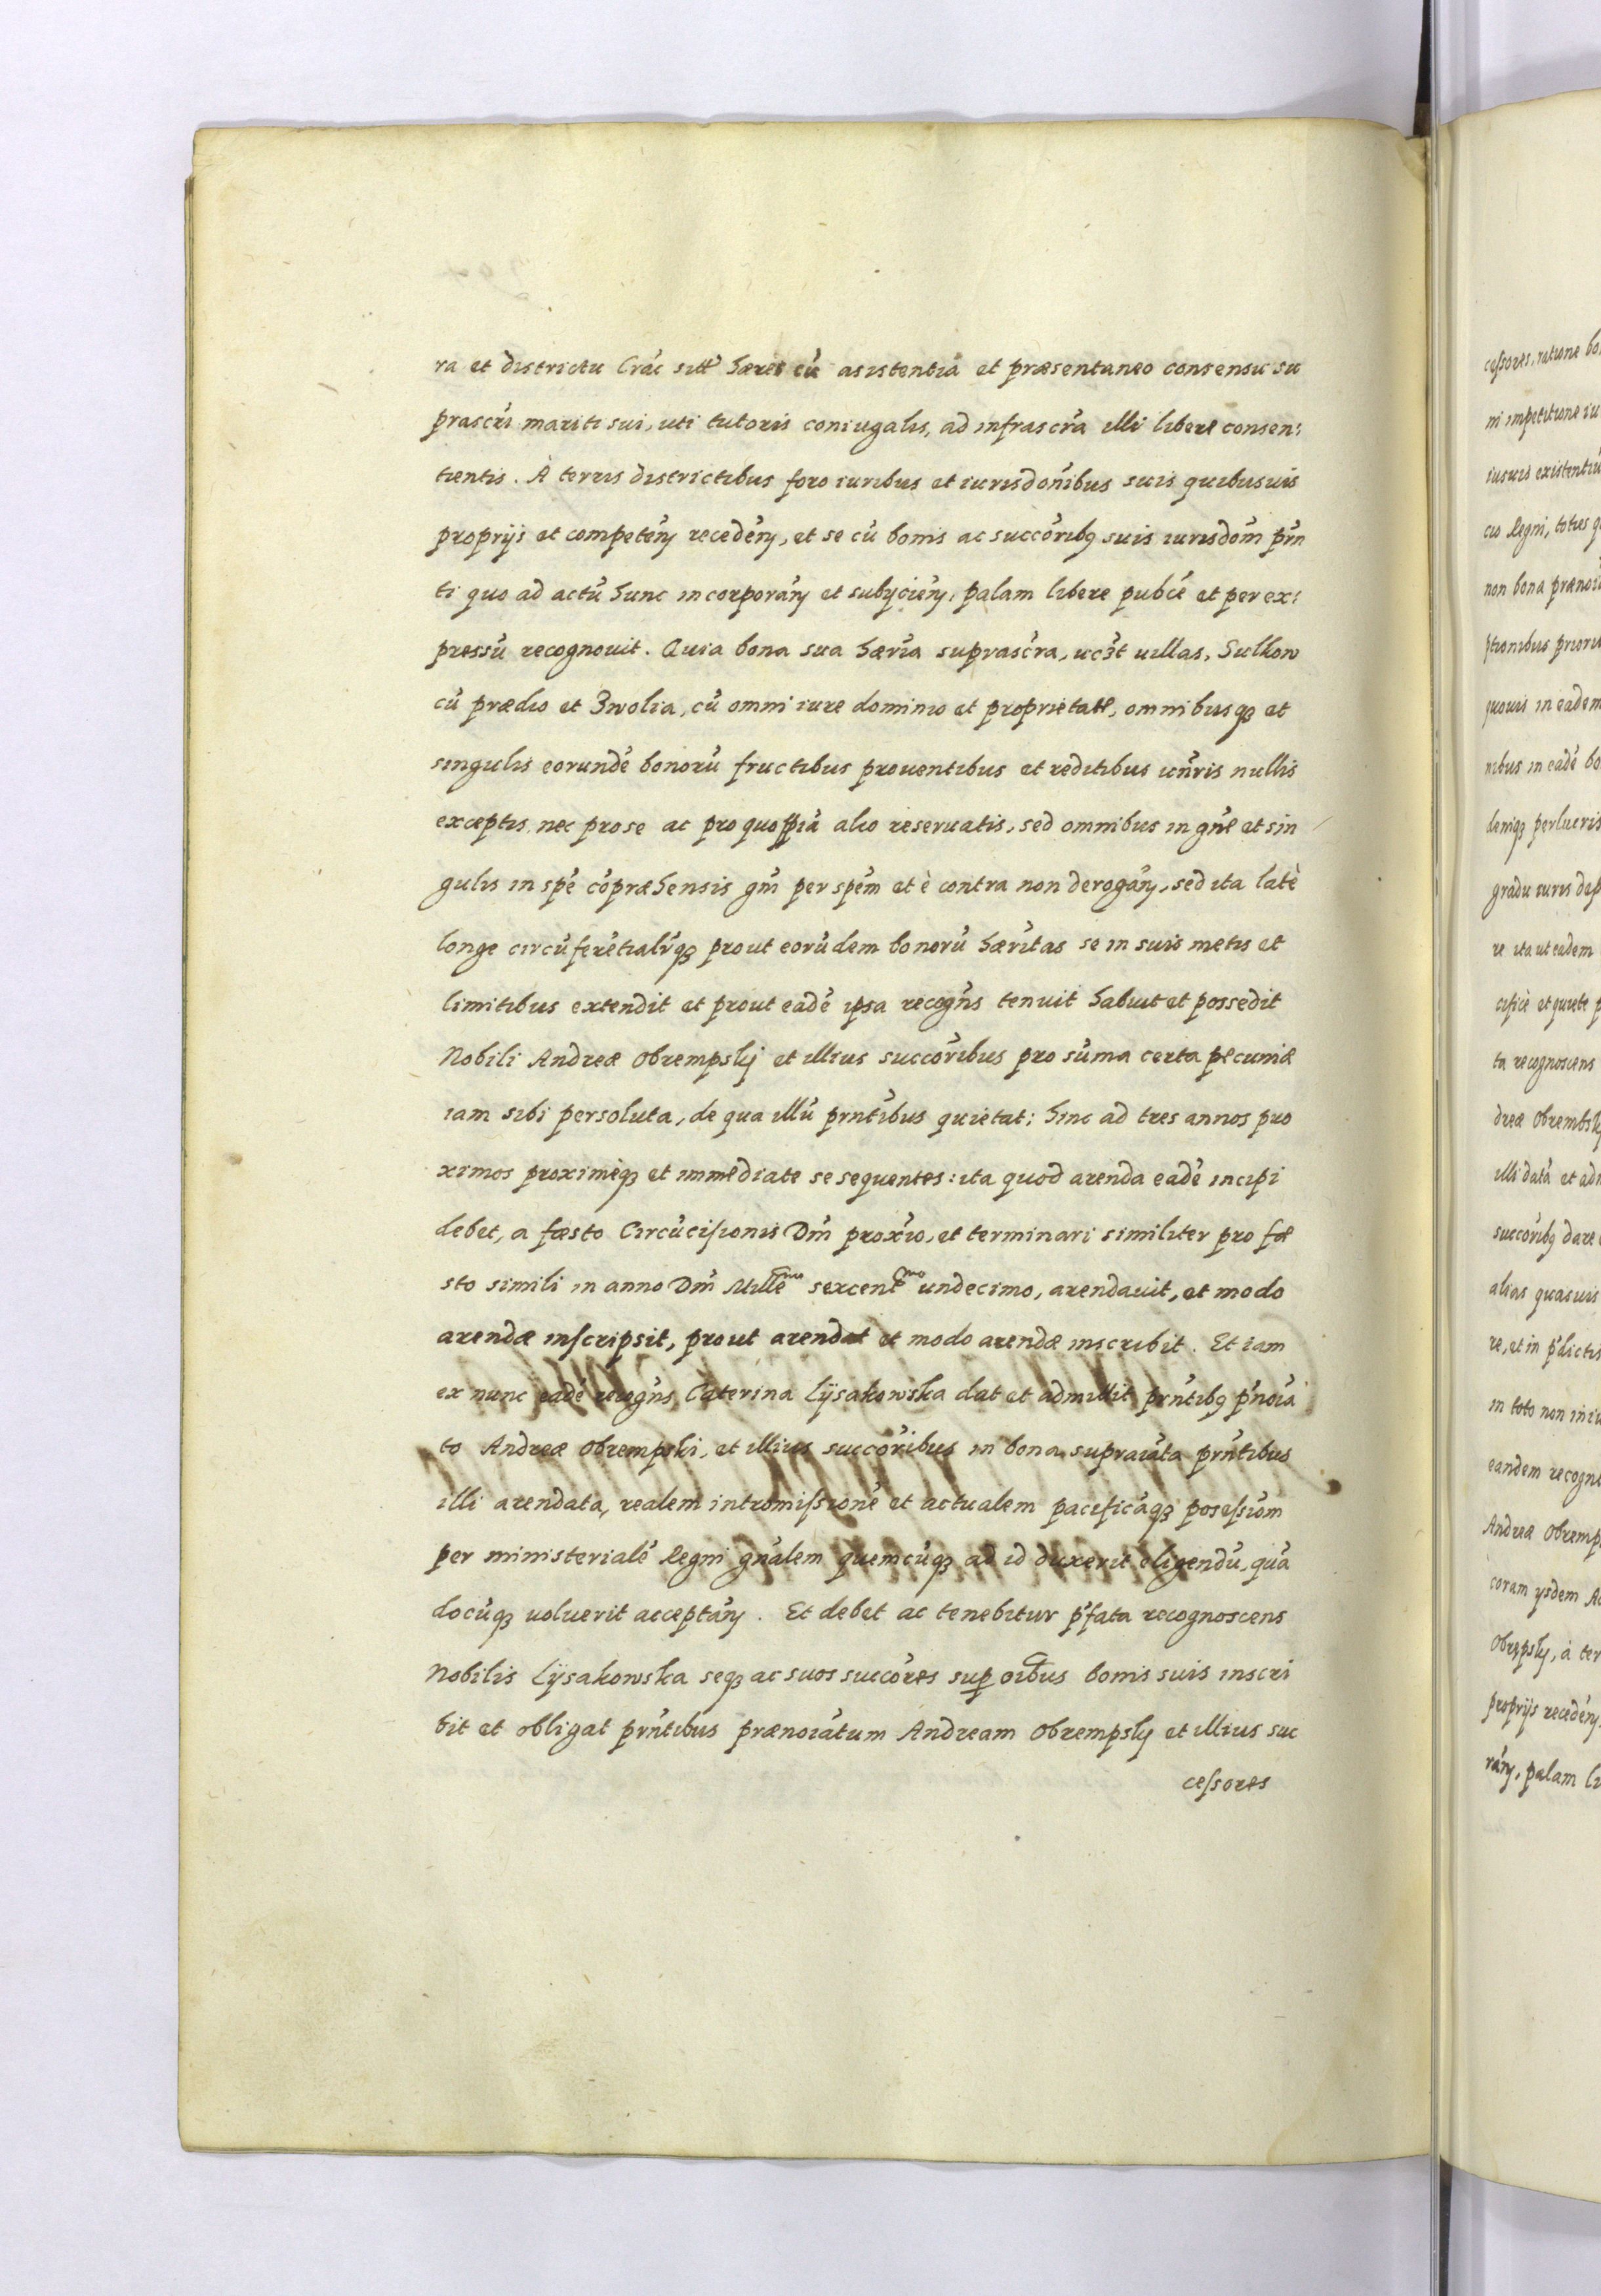 ra et districtu Crac̃ sitt̃ hæres cũ asistentia et præsentaneo consensu su
prascri mariti sui, uti tutoris coniugalis, ad infrascr̃a illi libere consen:
tientis. A terris districtibus foro iuribus et iurisdoñibus suis quibusuis
proprijs et competeñ recedeñ, et se cũ bonis ac succõribꝫ suis iurisdom̃ prñ
ti quo ad actũ hunc incorporañ et subyicieñ, palam libere pubcẽ et per ex:
pressũ recognouit. Quia bona sua hæria suprascr̃a, ucꝫt uillas, Sulkow
cũ prædio et Zwolia, cũ omni iure dominio et proprietate, omnibusqꝫ et
singulis eorundẽ bonorũ fructibus prouentibus et reditibus uñris nullis
exceptis, nec pro se ac pro quoppiã alio reseruatis, sed omnibus in gñe et sin
gulis in spẽ cõpræhensis gñi per spẽm et è contra non derogañ, sed ita latè
longe circũferẽtialr̃qꝫ prout eorũdem bonorũ hær̃itas se in suis metis et
limitibus extendit et prout eadẽ ipsa recogñs tenuit habuit et possedit
Nobili Andreæ Obrempsky et illius succõribus pro sũma certa pecuniæ
iam sibi persoluta, de qua illũ prñtibus quietat: hinc ad tres annos pro
ximos proximèqꝫ et immediate se sequentes: ita quod arenda eadẽ incipi
debet, a fæsto Circũcisionis Dñi prox̃io, et terminari similiter pro fæ
sto simili in anno Dñi Mille͠mo sexcente͠mo undecimo, arendauit, et modo
arendæ inscripsit, prout arendat et modo arendæ inscribit. Et iam
ex nunc eadẽ recogñs Caterina Lÿsakowska dat et admittit prñtibꝫ p̃noĩa
to Andreæ Obrempski, et illius succõribus in bona supraiãta prñtibus
illi arendata, realem intromissionẽ et actualem pacificãqꝫ posessiõm
per ministerialẽ Regni gñalem quemcũqꝫ ad id duxerit eligendũ, quã
docũqꝫ uoluerit acceptañ. Et debet ac tenebitur p̃fata recognoscens
Nobilis Lÿsakowska seqꝫ ac suos succõres sup̱ oĩbus bonis suis inscri
bit et obligat prñtibus prænoiãtum Andream Obrempsky et illius suc
cessores